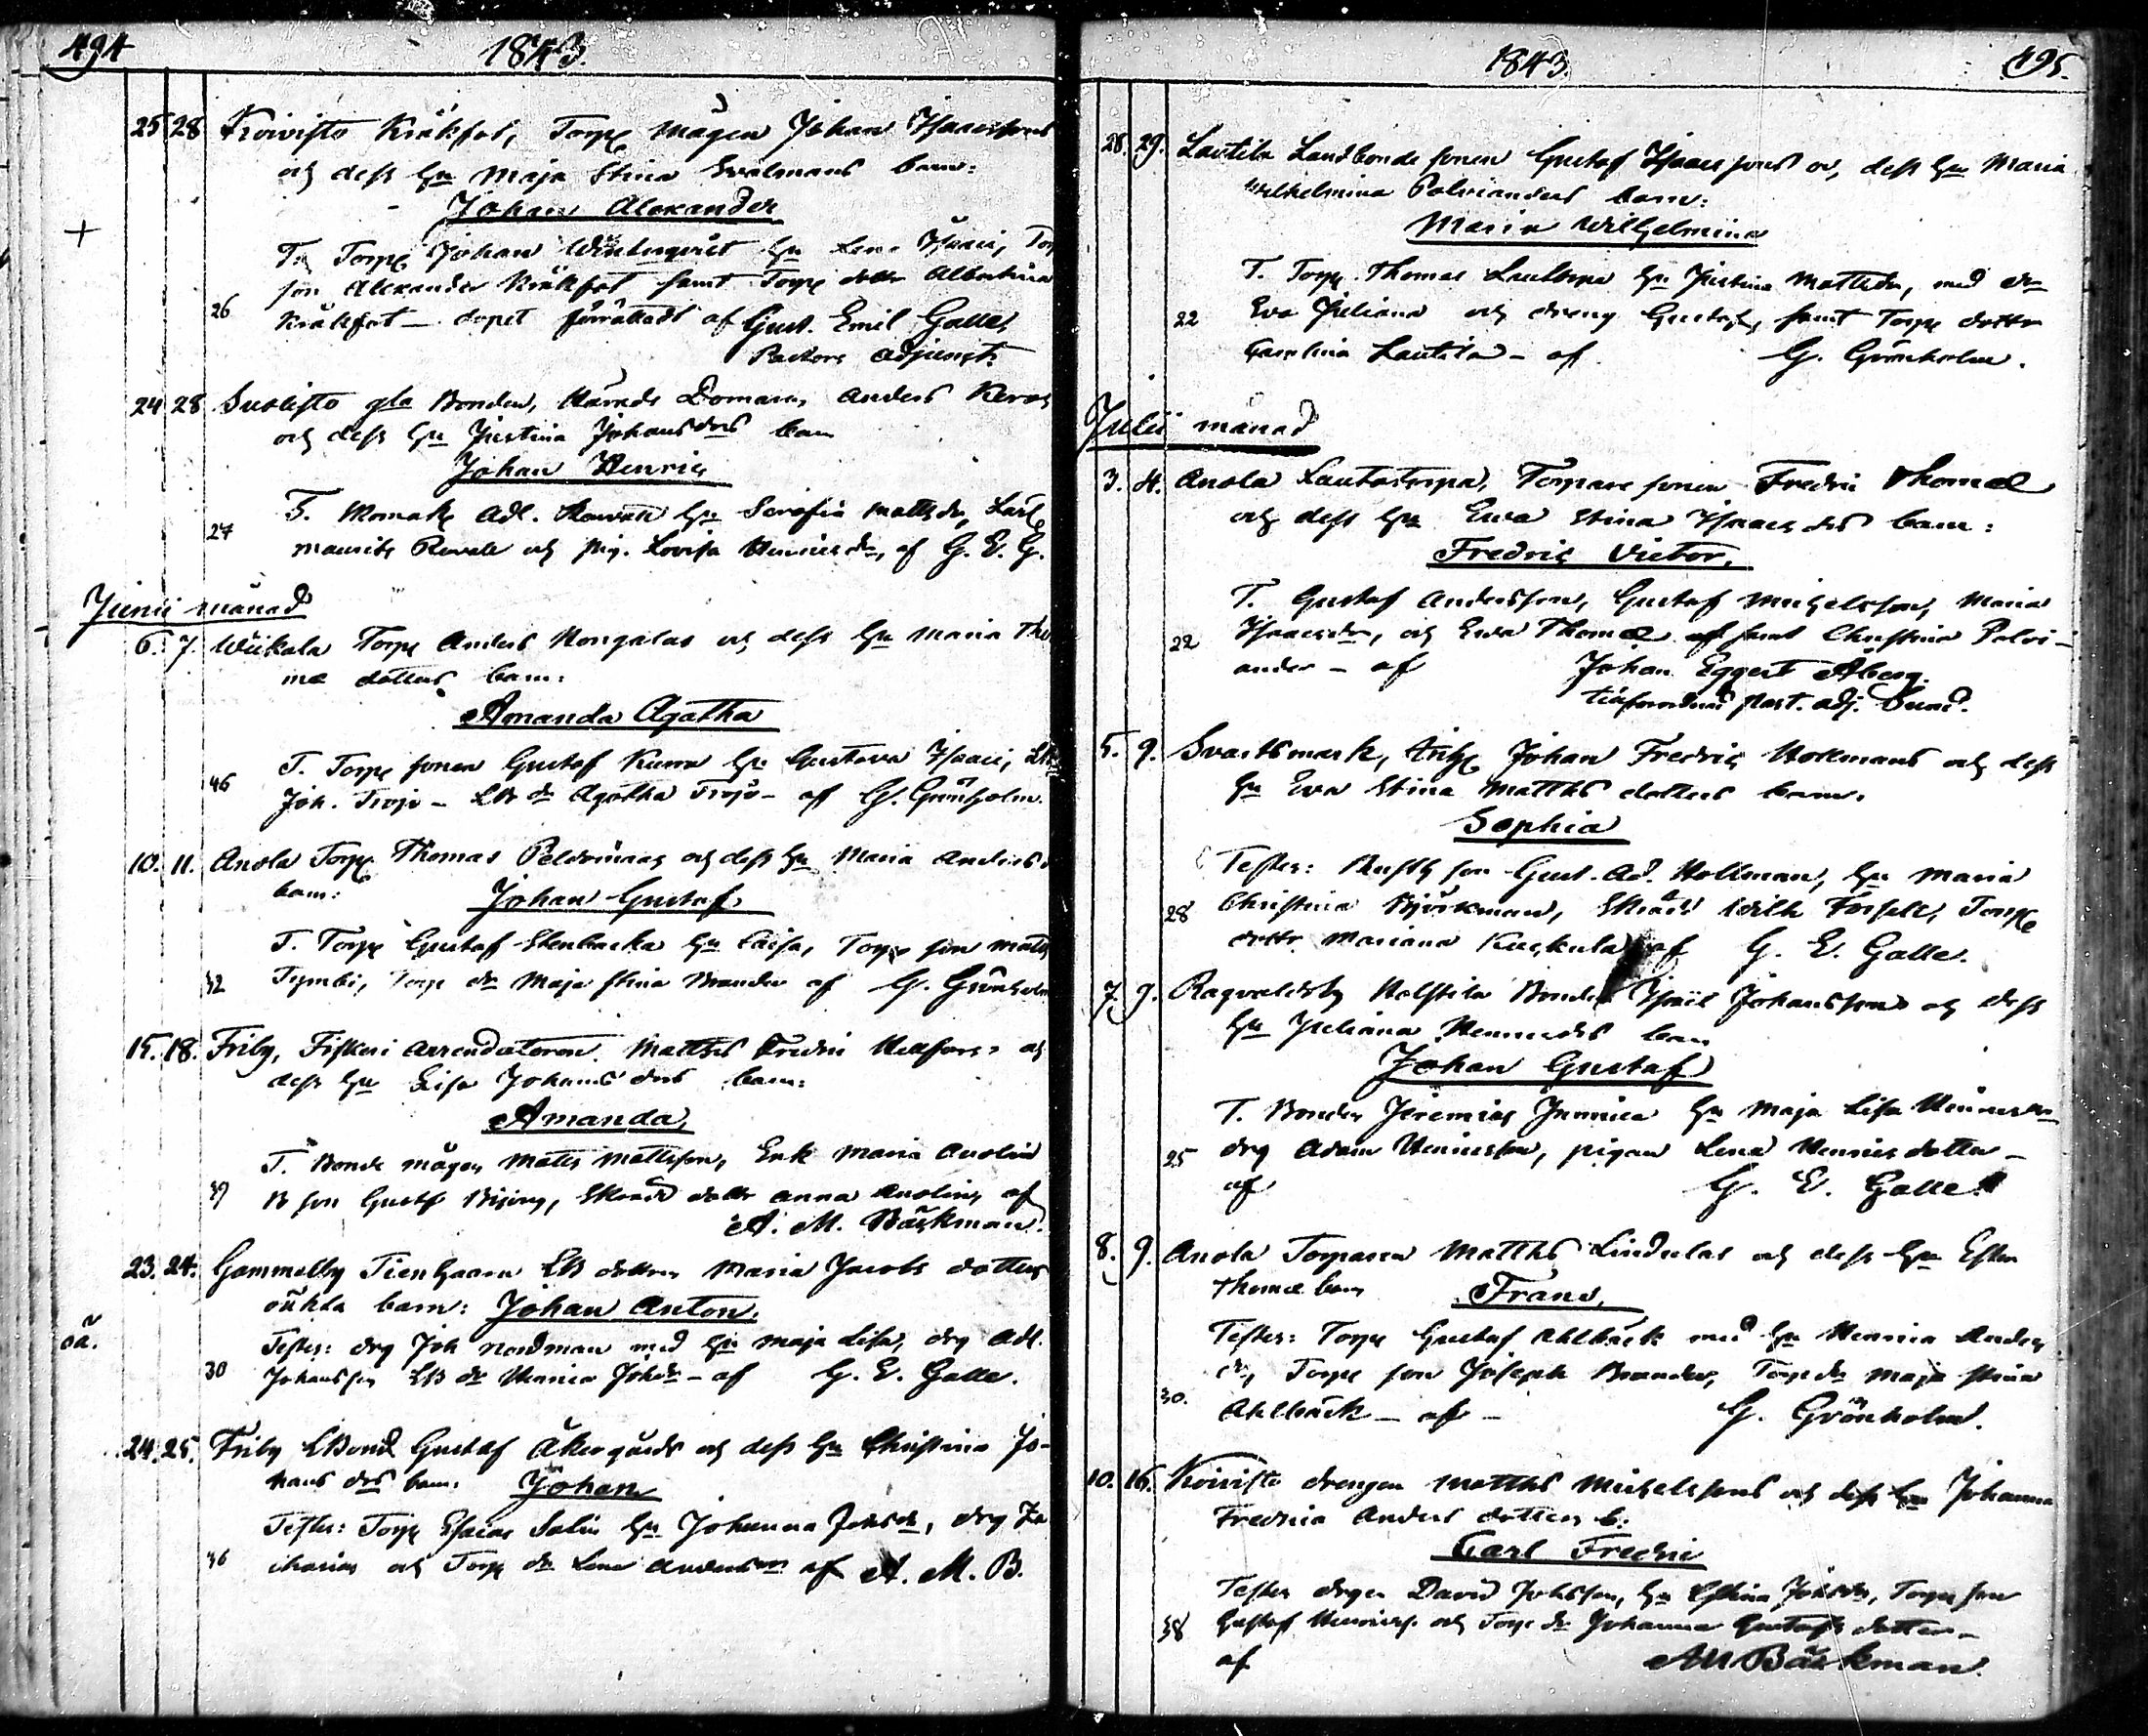 494
1843.
25 28 Koivisto Kräkfot, Torp mågen Johan Isaacssons
och dess hu Maja Stina Evalmans barn:
Johan Alexander
+
T. Torp Johan Winterqvist hu Lena Isaaci, Torp
son Alexander Kräkfot samt Torp dottr Albertina
26 Kräkfot – döpet förrättadt af Gust. Emil Galle,
Pastors Adjunct.
24 28 Suolisto gla Bonden, Härads Domaren Anders
och dess hu Justina Johansdrs barn
Johan Henric
27 T. Adl. hu Serafia Mattsdr, Carl
Maurits och pig. Lovisa Henricsdr, af G. E. G.
Junii månad
6. 7. Wiikala Torp Anders Kongalas och dess hu Maria Tho
mæ dotters barn:
Amanda Agatha
T. Torp sonen Gustaf hu Gustava Isaaci,
46 Joh. Trojo – LB dr Agatha Trojo – af G. Grönholm.
10. 11. Anola Torp Thomas och dess hu Maria Anders
barn: Johan Gustaf,
T. Torp Gustaf Stenbacka hu Caisa, Torp son Matts
32 Tymbi, Torp dr Maja Stina Brander af G. Grönholm
15. 18. Friby, Fiskeri Arrendatoren Matths Fredric Hellfors och
dess hu Lisa Johans drs barn:
Amanda,
T. Bonde mågen Matts Mattsson, Enk Maria Anolin
39 B son Gustaf dottr Anna Anolin, af
A. M. Bäckman.
23. 24. Gammelby Tienhaara LB dottren Maria Jacobs dotters
oä. oäkta barn: Johan Anton.
Testes: drg Joh Nordman med hu Maja Lisa, drg Adl.
30 Johansson LB dr Henrica Johdr – af G. E. Galle.
24. 25. Friby LBond Gustaf Åkergårds och dess hu Christina Jo-
hans drs barn. Johan
Testes: Torp Esaias Salin hu Johanna Johsdr, drg Za
36 charias och Torp dr Lena Andersdr af A. M. B.
1843.
495.
28. 29. Lautila Landbonde sonen Gustaf Isaacssons o, dess hu Maria
Wilhelmina Palvianders barn:
Maria Wilhelmina
T. Torp. Thomas Lautorpa hu Justina Mattsdr, med dr
22 Eva Juliana och dreng Gustaf, samt Torp dottr
Carolina Lautila – af G. Grönholm.
Julii månad
3. 4. Anola Lautatorpa, Torpare sonen Fredric Thomæ
och dess hu Ewa Stina Isaacs drs barn:
Fredric Victor,
T. Gustaf Andersson, Gustaf Michelsson, Maria
22 Isaacsdr, och Ewa Thomæ samt Christina Palvi-
ander – af Johan Eggert Åberg.
tillförordnad Past. adj. Sund.
5. 9. Svartsmark, Johan Fredric Hollmans och dess
hu Ewa Stina Matths dotters barn.
Sophia
Testes: son Gust. Ad. Hollman, hu Maria
28 Christina Björkman, Wilh Forsell, Torp
dottr Mariana Kuckula af G. E. Galle.
7. 9. Ragvaldsby Holstila Bonden Isaac Johanssons och dess
hu Juliana Henricsdrs barn
Johan Gustaf
T. Bonden Jeremias Junnica hu Maja Lisa Henricsdr
25 drg Adam Henricsson, pigan Lena Henrics dotter –
af G. E. Galle.
8. 9. Anola Torparen Matths Lindulas och dess hu Ester
Thomæ barn Frans,
Testes: Torp Gustaf Ahlbäck med hu Henrica Anders
dr, Torp son Joseph Brander, Torp dr Maja Stina
30. Ahlbäck – af – G. Grönholm.
10. 16. Koivisto drengen Matths Michelssons och dess hu Johanna
Fredrica Anders dotters b:
Carl Fredric
Testes drgen David Johsson, hu Johsdr, Torp son
38 Gustaf Henricss. och Torp dr Johanna Gustafs dotter –
af AMBäckman.